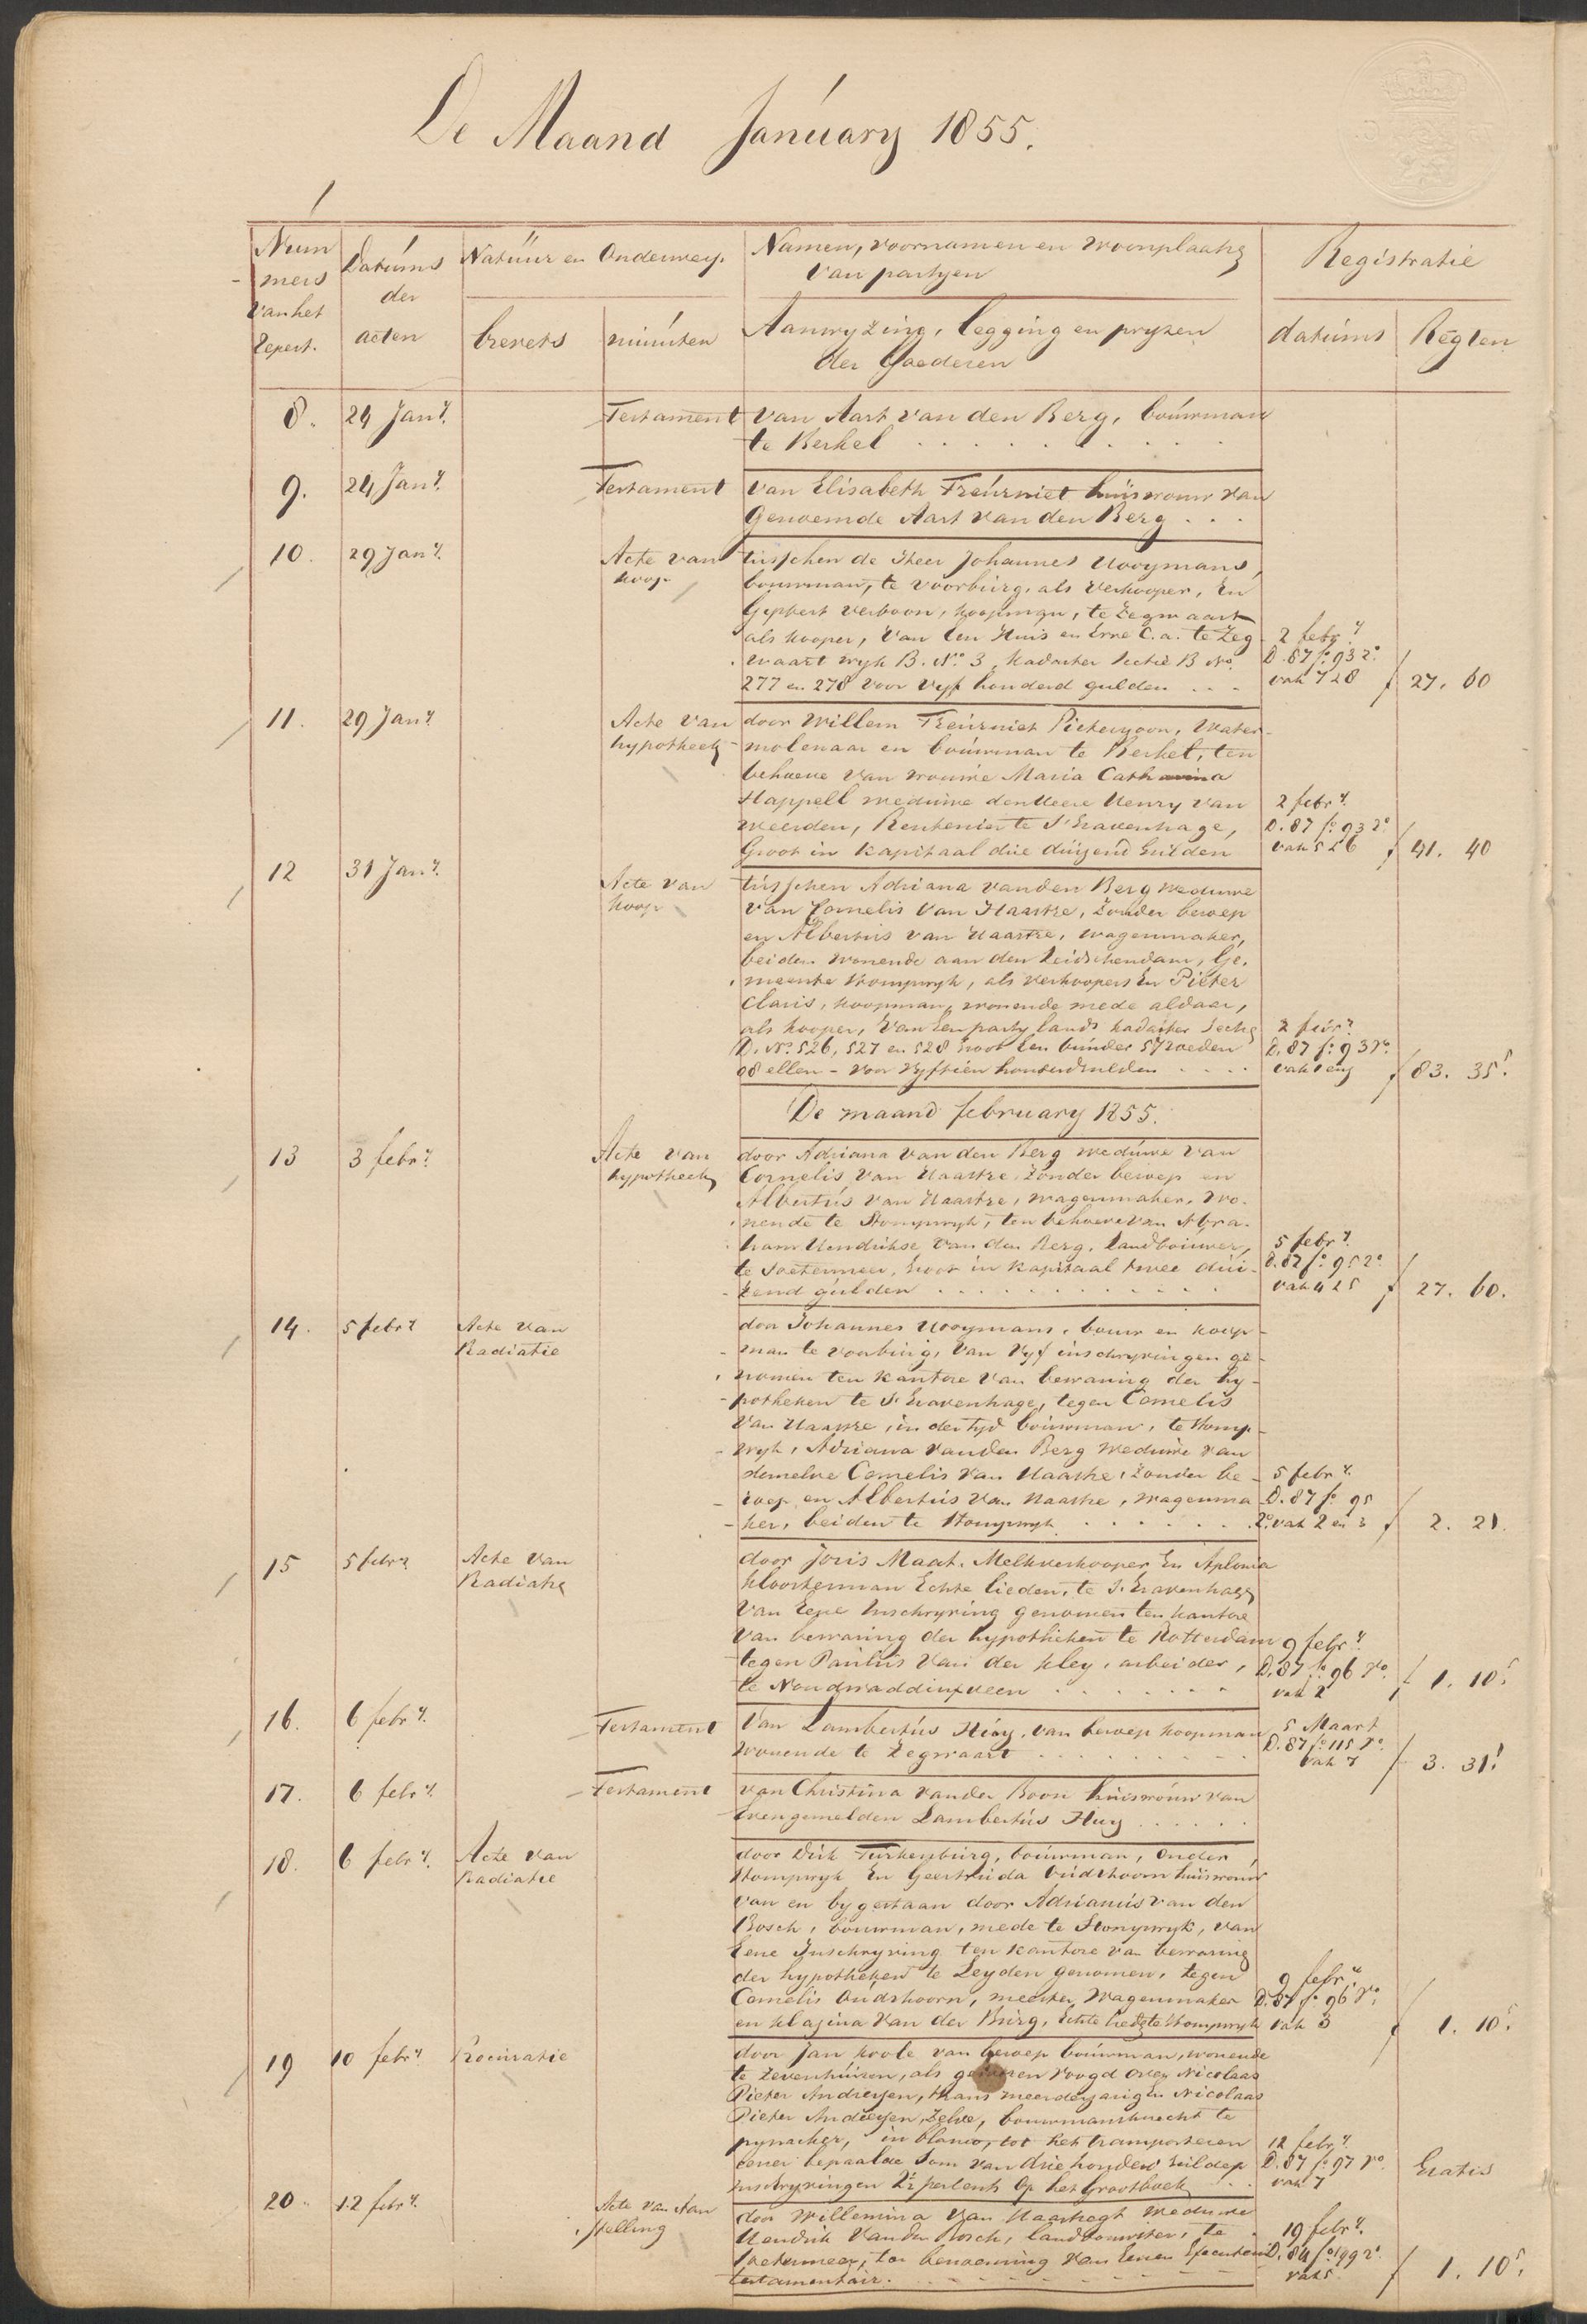 De Maand January 1855.
Num Datums Natuur en Onderwerp. Namen, voornamen en woonplaats Registratie
mers der van partyen
van het acten brevets minuten Aanwyzing, legging en pryzen datums Regten
Repert. der Goederen
8. 24 Jany. Testament van Aart van den Berg, bouwman
te Berkel
9. 24 Jany. Testament van Elisabeth Treurniet huisvrouw van
Genoemde Aart van den Berg
10. 29 Jany. Acte van tusschen de Heer Johannes Uooymans,
koop bouwman, te voorburg, als verkooper, En
Gysbert Verboon, koopman, te Zegwaart
als kooper, van een Huis en Erve C.a. te Zeg 2 febry.
waart wyk B. No. 3, kadaster Sectie B No. D. 87 fo. 93 ro.
277 en 278 voor vyf honderd gulden vak 728 f 27. 60
11. 29 Jany. Acte van door Willem Treurniet Pieterzoon, Water-
hypotheek molenaar en bouwman te Berkel, ten
behoeve van vrouwe Maria Catharina
Happell weduwe den Heere Henry van 2 febry.
Weerden, Rentenier te S'Gravenhage, D. 87 fo. 93 ro.
Groot in kapitaal drie duizend Gulden vak 526 f 41. 40
12 31 Jany. Acte van tusschen Adriana van den Berg weduwe
koop van Cornelis van Haastre, zonder beroep
en Albertus van Haastre, wagenmaker,
beiden wonende aan den Leidschendam, Ge-
meente Stompwyk, als verkoopers En Pieter
Claris, koopman, wonende mede aldaar,
als kooper, van Een party lands kadaster Sectie 2 febry.
D. No. 526, 527 en 528 Groot Een bunder 57 roeden D. 87 fo. 93 vo.
98 ellen - voor vyftien honderd Gulden f 83. 35 5
De maand february 1855.
13 3 febry. Acte van door Adriana van den Berg weduwe van
hypotheek Cornelis van Haastre, zonder beroep en
Albertus van Haastre, wagenmaker, wo-
nende te Stompwyk, ten behoeve van Abra-
ham Hendrikse van den Berg, landbouwer, 5 febry.
te Soetermeer, Groot in kapitaal twee dui- D. 87 fo. 95 ro.
zend gulden vak 425 f 27. 60.
14. 5 febry Acte van door Johannes Uooymans, bouw en koop-
Radiatie man te voorburg, van vyf inschryvingen ge-
nomen ten kantore van bewaring der hy-
potheken te S'Gravenhage, tegen Cornelis
van Haastre, in der tyd bouwman, te Stomp-
wyk, Adriana van den Berg weduwe van
denzelve Cornelis van Haastre, zonder be- 5 febry.
roep en Albertus van Haastre, wagenma- D. 87 fo. 95
ker, beiden te Stompwyk ro. vak 2 en 3 f 2. 21.
15 5 febry Acte van door Joris Maat, Melkverkooper En Aplonia
Radiatie Kloosterman Echte lieden, te S.Gravenhage
van Eene Inschryving genomen ten kantore
van bewaring der hypotheken te Rotterdam 9 febry.
tegen Paulus van der Kley, arbeider, D. 87 fo. 96 vo.
te Noordwaddinxveen vak 2 f 1. 10 5
16. 6 febry. Testament van Lambertus Huy, van beroep koopman 5 Maart
wonende te Zegwaart D. 87 fo. 115 vo.
vak 7 f 3. 31 5
17. 6 febry. Testament van Christina van der Boon huisvrouw van
evengemelden Lambertus Huy
18. 6 febry. Acte van door Dirk Turkenburg, bouwman, onder
Radiatie Stompwyk En Geertruida Oudshoorn huisvrouw
van en bygestaan door Adrianus van den
Bosch, bouwman, mede te Stompwyk, van
Eene Inschryving ten kantore van bewaring
der hypotheken te Leyden genomen, tegen 9 febry
Cornelis Oudshoorn, meester Wagenmaker D. 87 fo. 96 vo.
en Klazina van der Burg, Echte lieden te Stompwyk vak 3 f 1. 10 5
19 10 febry Procuratie door Jan Koole van beroep bouwman, wonende
te Zevenhuizen, als gewezen voogd over Nicolaas
Pieter Andriessen, thans meerderjarig En Nicolaas
Pieter Andriessen, Zelve, bouwmansknecht te
pynacker, in blanco, tot het transporteren 12 febry.
eener bepaalde Som van drie honderd Gulden D. 87 fo. 97 vo. Gratis
inschryvingen 2½ percents Op het Grootboek vak 7
20. 12 febry. Acte van Aan door Willemina van Haastregt weduwe
stelling Hendrik van den Bosch, landbouwster, te 19 febry.
Soetermeer, tot benoeming van Eenen Executeur D. 84 fo. 199 ro.
testamentair. vak 5. f 1. 10 5